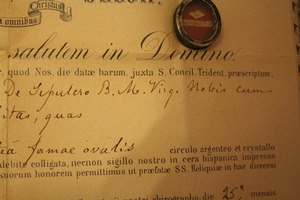 Christus
in omnibus
salutem in Domino.
r, quod Nos, die datæ harum, juxta S. Concil. Trident. præscriptum,
De Sepulcro B. M. Virg. Nobis cum
litas, quas
formae ovalis circulo argenteo et crystallo
debite colligata, necnon sigillo nostro in cera hispanica impresso
honorem permittimus ut præfatæ SS. Reliquiæ in hac diœcesi
chirographo die 25ª mensis